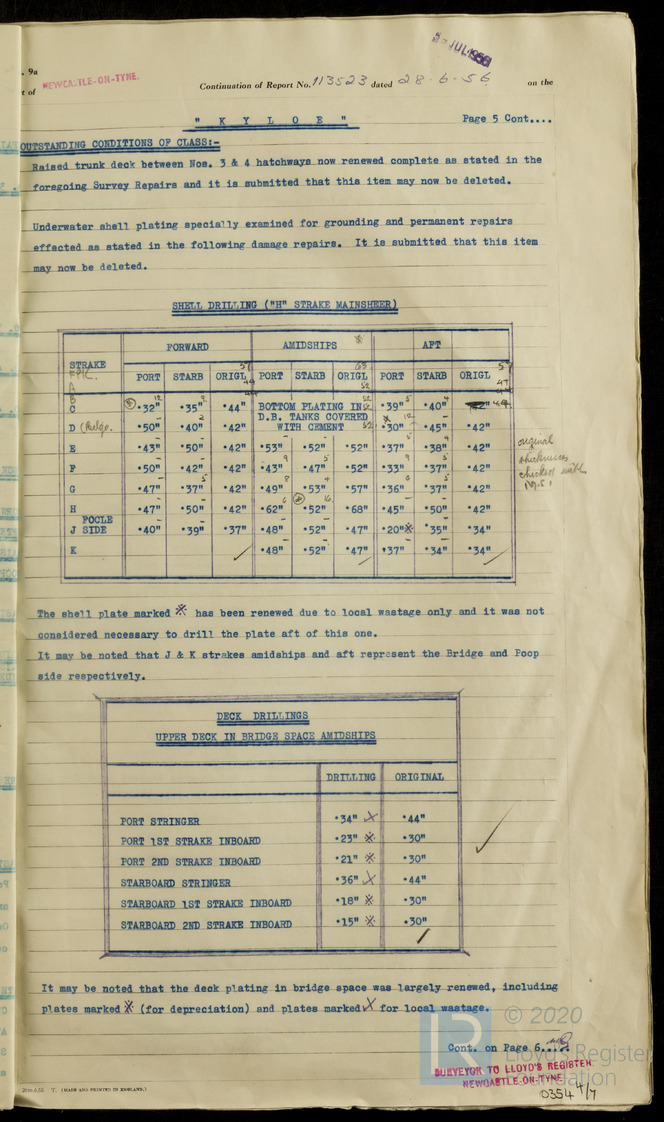 JUL 1956
. 9a
t of
NEWCASTLE-ON-TYNE.
Continuation of Report No. 113523 dated 28-6-56 on the
" K Y L O E "
Page 5 Cont....
OUTSTANDING CONDITIONS OF CLASS:-
Raised trunk deck between Nos. 3 & 4 hatchways now renewed complete as stated in the
foregoing Survey Repairs and it is submitted that this item may now be deleted.
Underwater shell plating specially examined for grounding and permanent repairs
effected as stated in the following damage repairs. It is submitted that this item
may now be deleted.
SHELL DRILLING ("H" STRAKE MAINSHEER)
FORWARD AMIDSHIPS AFT
STRAKE PORT STARB ORIGL PORT STARB ORIGL PORT STARB ORIGL
A
B
C ·32" ·35" ·44" BOTTOM PLATING IN ·39" ·40" 44
D.B. TANKS COVERED
D ·50" ·40" ·42" WITH CEMENT ·30" ·45" ·42"
E ·43" ·50" ·42" ·53" ·52" ·52" ·37" ·38" ·42"
F ·50" ·42" ·42" ·43" ·47" ·52" ·33" ·37" ·42"
G ·47" ·37" ·42" ·49" ·53" ·57" ·36" ·37" ·42"
H ·47" ·50" ·42" ·62" ·52" ·68" ·45" ·50" ·42"
FOCLE
J SIDE ·40" ·39" ·37" ·48" ·52" ·47" ·20"※ ·35" ·34"
K ·48" ·52" ·47" ·37" ·34" ·34"
original
thicknesses
checked with
The shell plate marked ※ has been renewed due to local wastage only and it was not
considered necessary to drill the plate aft of this one.
It may be noted that J & K strakes amidships and aft represent the Bridge and Poop
side respectively.
DECK DRILLINGS
UPPER DECK IN BRIDGE SPACE AMIDSHIPS
DRILLING ORIGINAL
PORT STRINGER ·34" X ·44"
PORT 1ST STRAKE INBOARD ·23" ※ ·30"
PORT 2ND STRAKE INBOARD ·21" ※ ·30"
STARBOARD STRINGER ·36" X ·44"
STARBOARD 1ST STRAKE INBOARD ·18" ※ ·30"
STARBOARD 2ND STRAKE INBOARD ·15" ※ ·30"
It may be noted that the deck plating in bridge space was largely renewed, including
plates marked ※ (for depreciation) and plates marked X for local wastage.
© 2020
Cont. on Page 6....
LR
Lloyd's Register
Foundation
SURVEYOR TO LLOYD'S REGISTER
NEWCASTLE-ON-TYNE.
0354 4/7
T. (MADE AND PRINTED IN ENGLAND.)